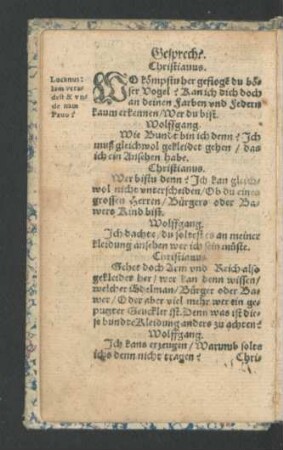 Gespreche.
Christianus.
WO kömpstu her gefloge du bö-
ser Vogel? Kan ich dich doch
an deinen Farben vnd Federn
kaum erkennen/ Wer du bist.
Wolffgang.
Wie Bundt bin ich denn? Ich
muß gleichwol gekleidet gehen/ das
ich ein Ansehen habe.
Christianus.
Wer bistu denn? Ich kan gleich-
wol nicht vnterscheiden/ Ob du eines
grossen Herren/ Bürgers oder Ba-
wers Kind bist.
Wolffgang.
Ich dachte/ du soltest es an meiner
kleidung ansehen wer ich sein müste.
Christianus.
Gehet doch Arm vnd Reich also
gekleidet her/ wer kan denn wissen/
welcher Edelman/ Bürger oder Ba-
wer/ Oder aber viel mehr wer ein ge-
putzter Geuckler ist. Denn was ist die-
se bundte Kleidung anders zu achten?
Wolffgang.
Ich kans erzeugen/ Warumb solt
ichs denn nicht tragen?
Chris